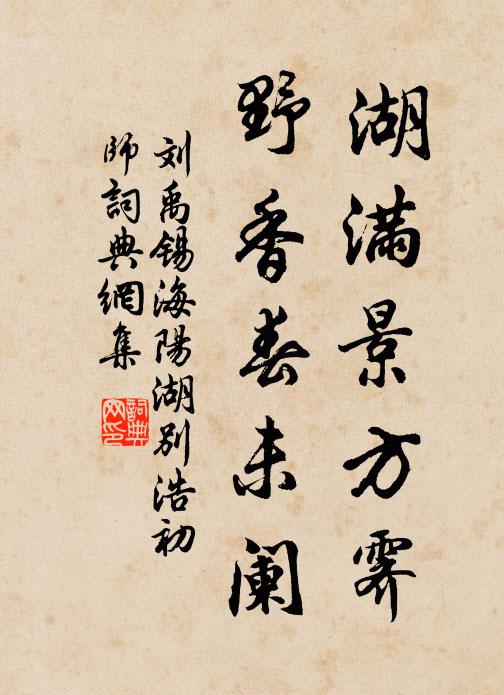 湖满景方霁
野香春未阑
刘禹锡海陽湖别浩初
师詞典網集
詞典
网印